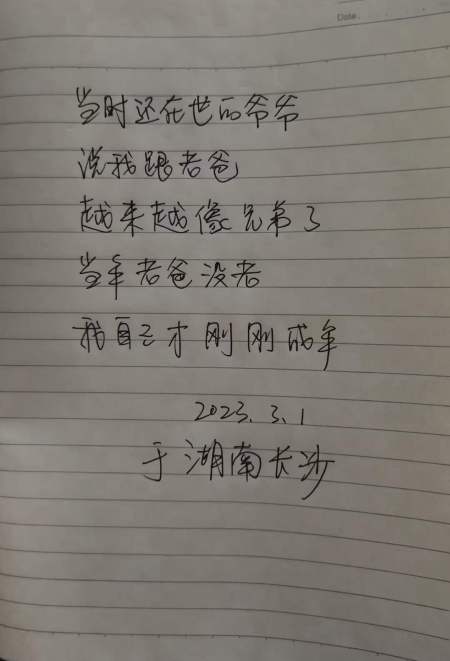 Date.
当时还在世的爷爷
说我跟老爸
越来越像兄弟了
当年老爸没老
我自己才刚刚成年
2023.3.1
于湖南长沙